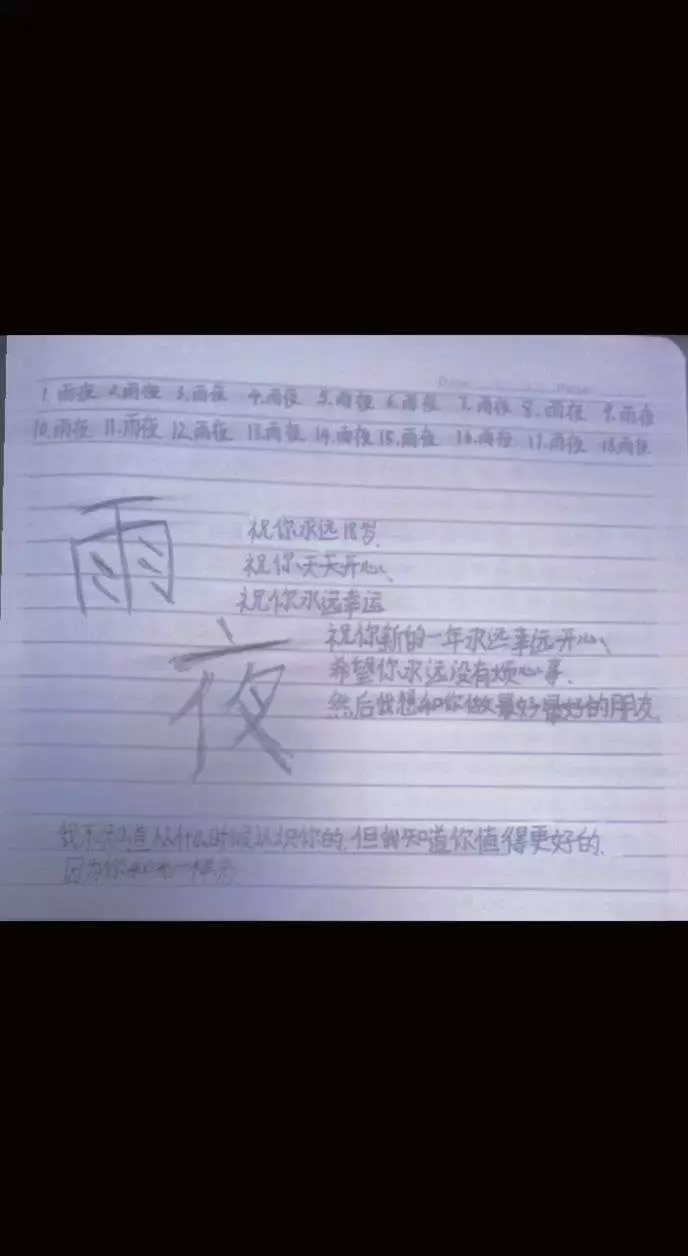 Date Page
1.雨夜 2.雨夜 3.雨夜 4.雨夜 5.雨夜 6.雨夜 7.雨夜 8.雨夜 9.雨夜
10.雨夜 11.雨夜 12.雨夜 13.雨夜 14.雨夜 15.雨夜 16.雨夜 17.雨夜 18.雨夜
雨
祝你永远18岁.
祝你天天开心、
祝你永远幸运
夜
祝你新的一年永远幸运开心、
希望你永远没有烦心事.
然后我想和你做最好最好的朋友
我不知道从什么时候认识你的.但我知道你值得更好的.
因为你和光一样亮